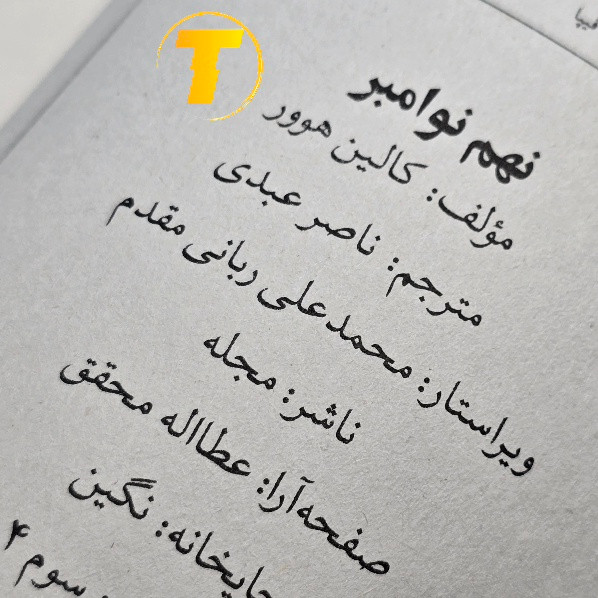 نهم نوامبر
مؤلف: کالین هوور
مترجم: ناصر عبدی
ویراستار: محمدعلی ربانی مقدم
ناشر: مجله
صفحه‌آرا: عطااله محقق
چاپخانه: نگین
سوم ۴
T